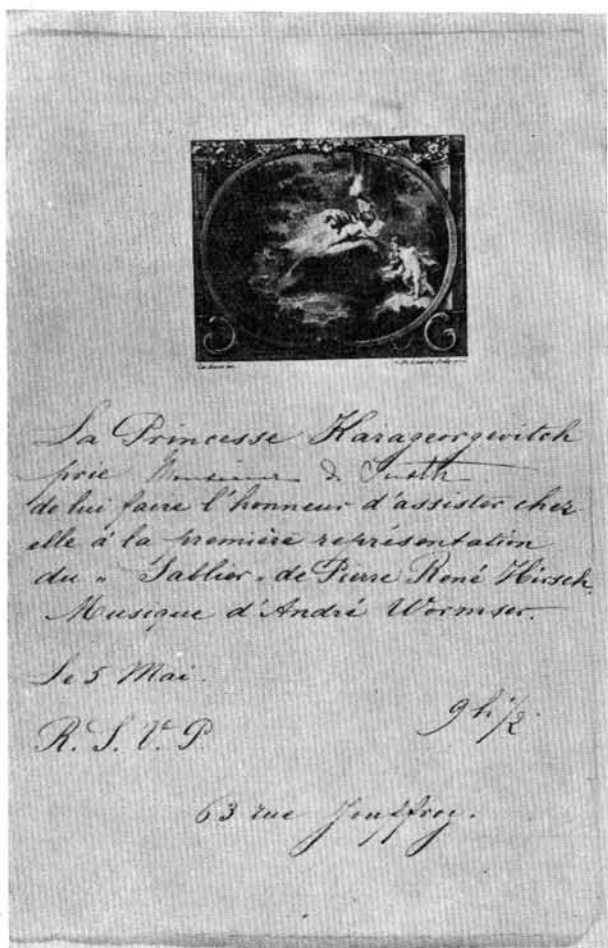 La Princesse Karageorgevitch
prie Monsieur de Justh
de lui faire l'honneur d'assister chez
elle à la première représentation
du " Sablier " de Pierre René Hirsch.
Musique d'André Wormser.
Le 5 Mai.
9 h 1/2
R. S. V. P.
63 rue Jouffroy.